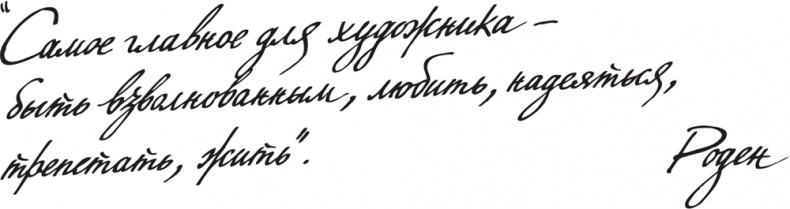 "Самое главное для художника –
быть взволнованным, любить, надеяться,
трепетать, жить".
Роден